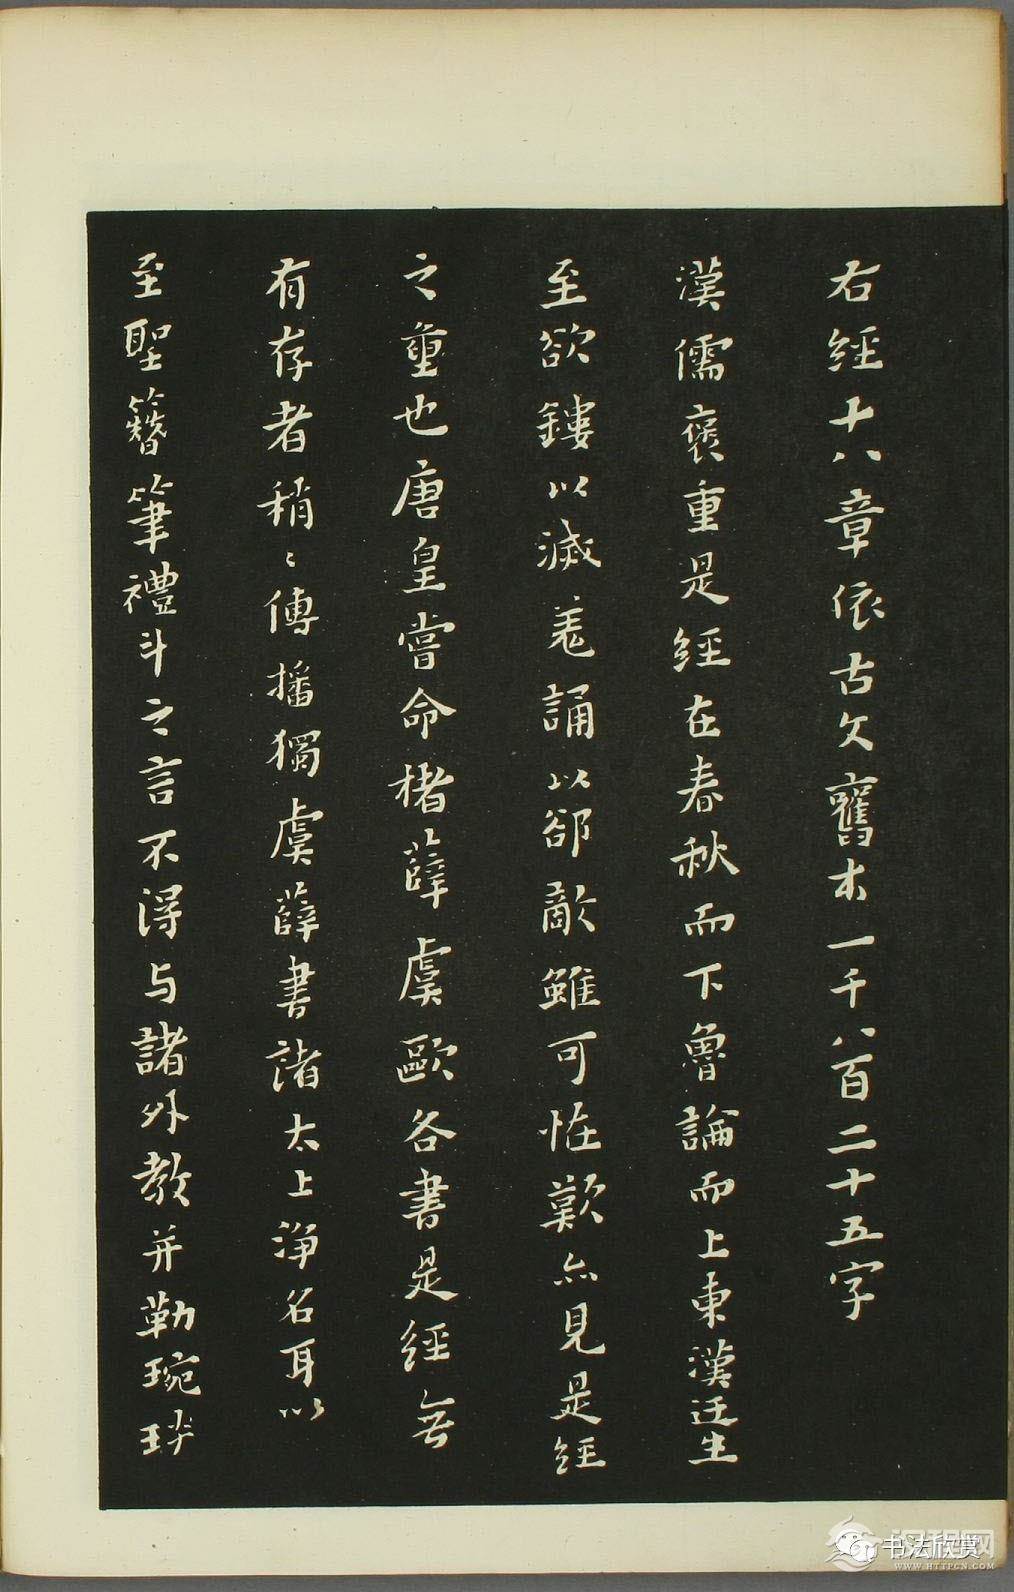 右經十八章依古文舊本一千八百二十五字
漢儒褒重是經在春秋而下魯論而上東漢迂生
至欲鏤以滅羌誦以郤敵雖可怪歎亦見是經
之重也唐皇嘗命楮薛虞歐各書是經無
有存者稍〻傳播獨虞薛書諸太上淨名耳以
至聖簪筆禮斗之言不得与諸外教并勒琬琰
书法欣赏
WWW.HTTPCN.COM